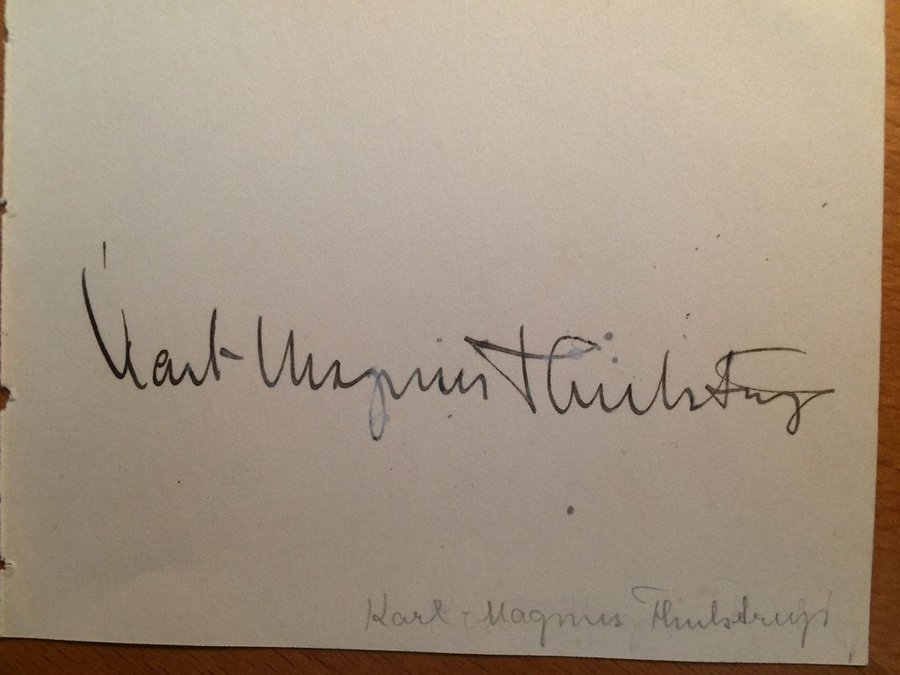 Karl-Magnus Thulstrup
Karl-Magnus Thulstrup